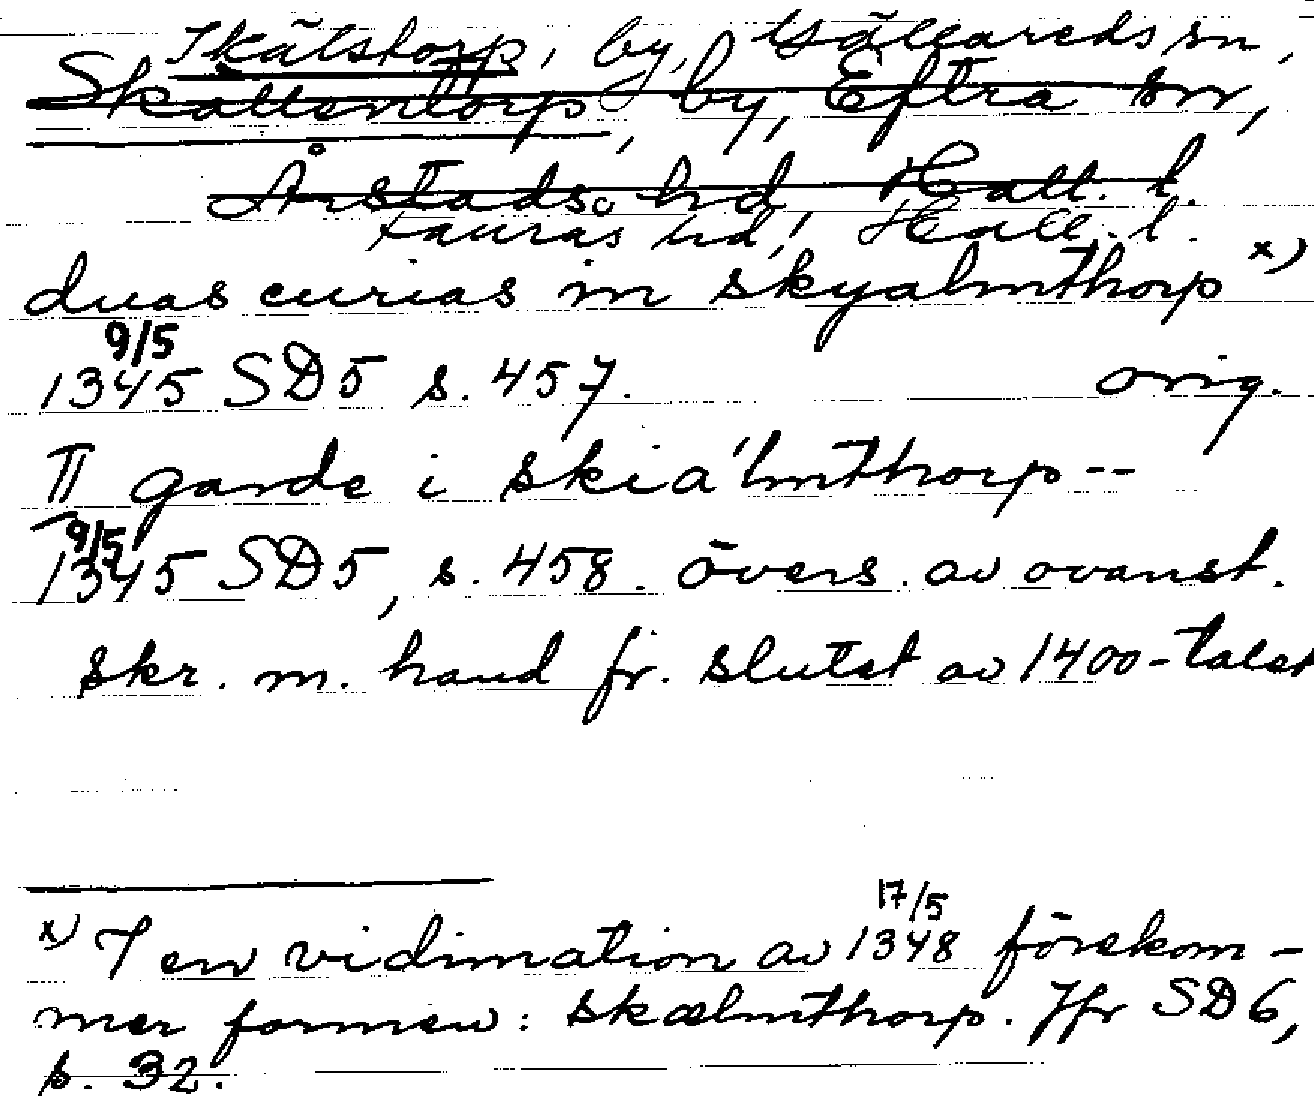 Skälstorp, by, Gällareds sn,
Skällentorp, by, Eftra sn,
Årstads hd Hall. l.
Faurås hd, Hall. l.
duas curias in skyalmthorp x)
9/5
1345 SD5 s. 457. orig.
II garde i skiálmthorp--
9/5
1345 SD5, s. 458. övers. av ovanst.
skr. m. hand fr. slutet av 1400-talet
x) I en vidimation av 17/5 1348 förekom-
mer formen: skælmthorp. Jfr SD6,
s. 32.